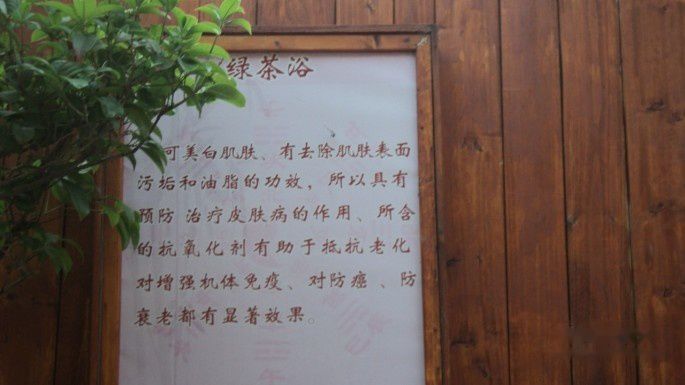 绿茶浴
可美白肌肤、有去除肌肤表面
污垢和油脂的功效，所以具有
预防 治疗皮肤病的作用、所含
的抗氧化剂有助于抵抗老化
对增强机体免疫、对防癌、防
衰老都有显著效果。
午